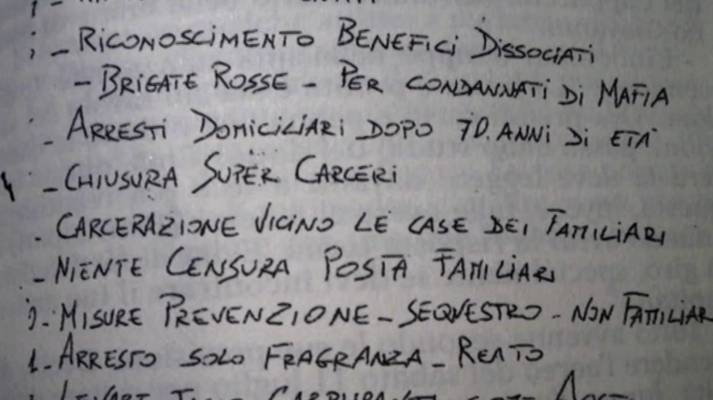 - RICONOSCIMENTO BENEFICI DISSOCIATI
- BRIGATE ROSSE - PER CONDANNATI DI MAFIA
- ARRESTI DOMICILIARI DOPO 70. ANNI DI ETA'
- CHIUSURA SUPER CARCERI
- CARCERAZIONE VICINO LE CASE DEI FAMILIARI
- NIENTE CENSURA POSTA FAMILIARI
- MISURE PREVENZIONE - SEQUESTRO - NON FAMILIAR
1- ARRESTO SOLO FRAGRANZA - REATO
LEVARE